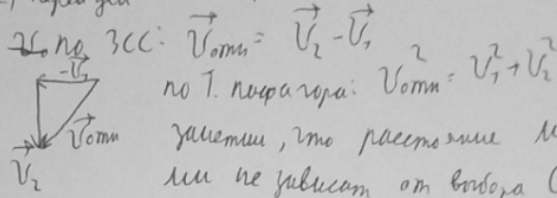 по ЗСС: V⃗отн = V⃗₂ - V⃗₁
-V⃗₁
по Т. Пифагора: V²отн = V₁² + V₂²
V⃗отн
заметим, что расстояние
V⃗₂
ми не зависит от выбора